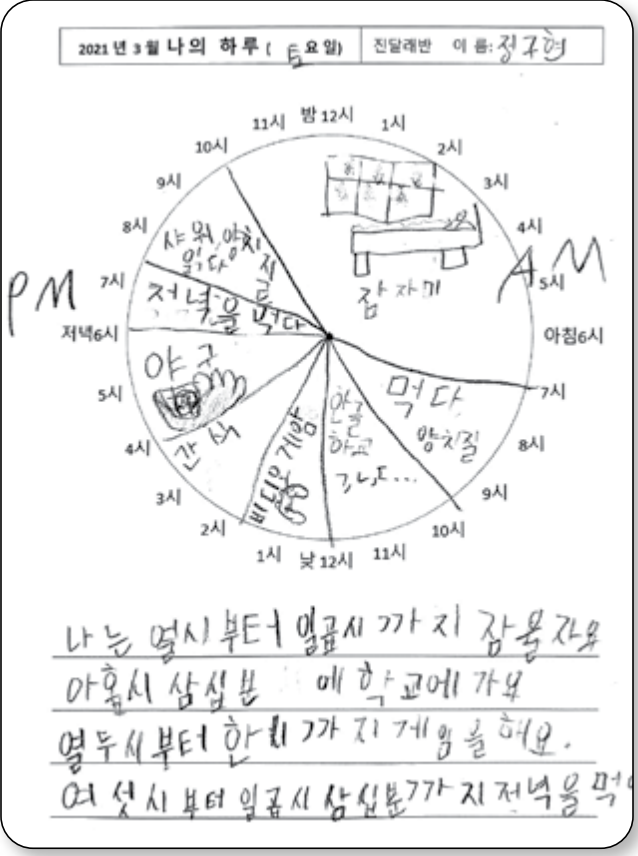 2021년 3월 나의 하루 ( 토요일) 진달래반 이 름: 정구현
밤 12시
1시
2시
3시
4시
5시
아침6시
7시
8시
9시
10시
11시
낮 12시
1시
2시
3시
4시
5시
저녁6시
7시
8시
9시
10시
11시
AM
PM
잠 자기
먹다
양치질
한글
학교
ㄱ,ㄴ,ㄷ...
비디오 게임
간식
야구
저녁을 먹다
샤워, 양치질
읽다
나는 열시부터 일곱시 까지 잠을자요
아홉시 삼십분 에 학교에 가요
열두시부터 한시 까지 게임을 해요.
여섯시부터 일곱시 삼십분까지 저녁을 먹